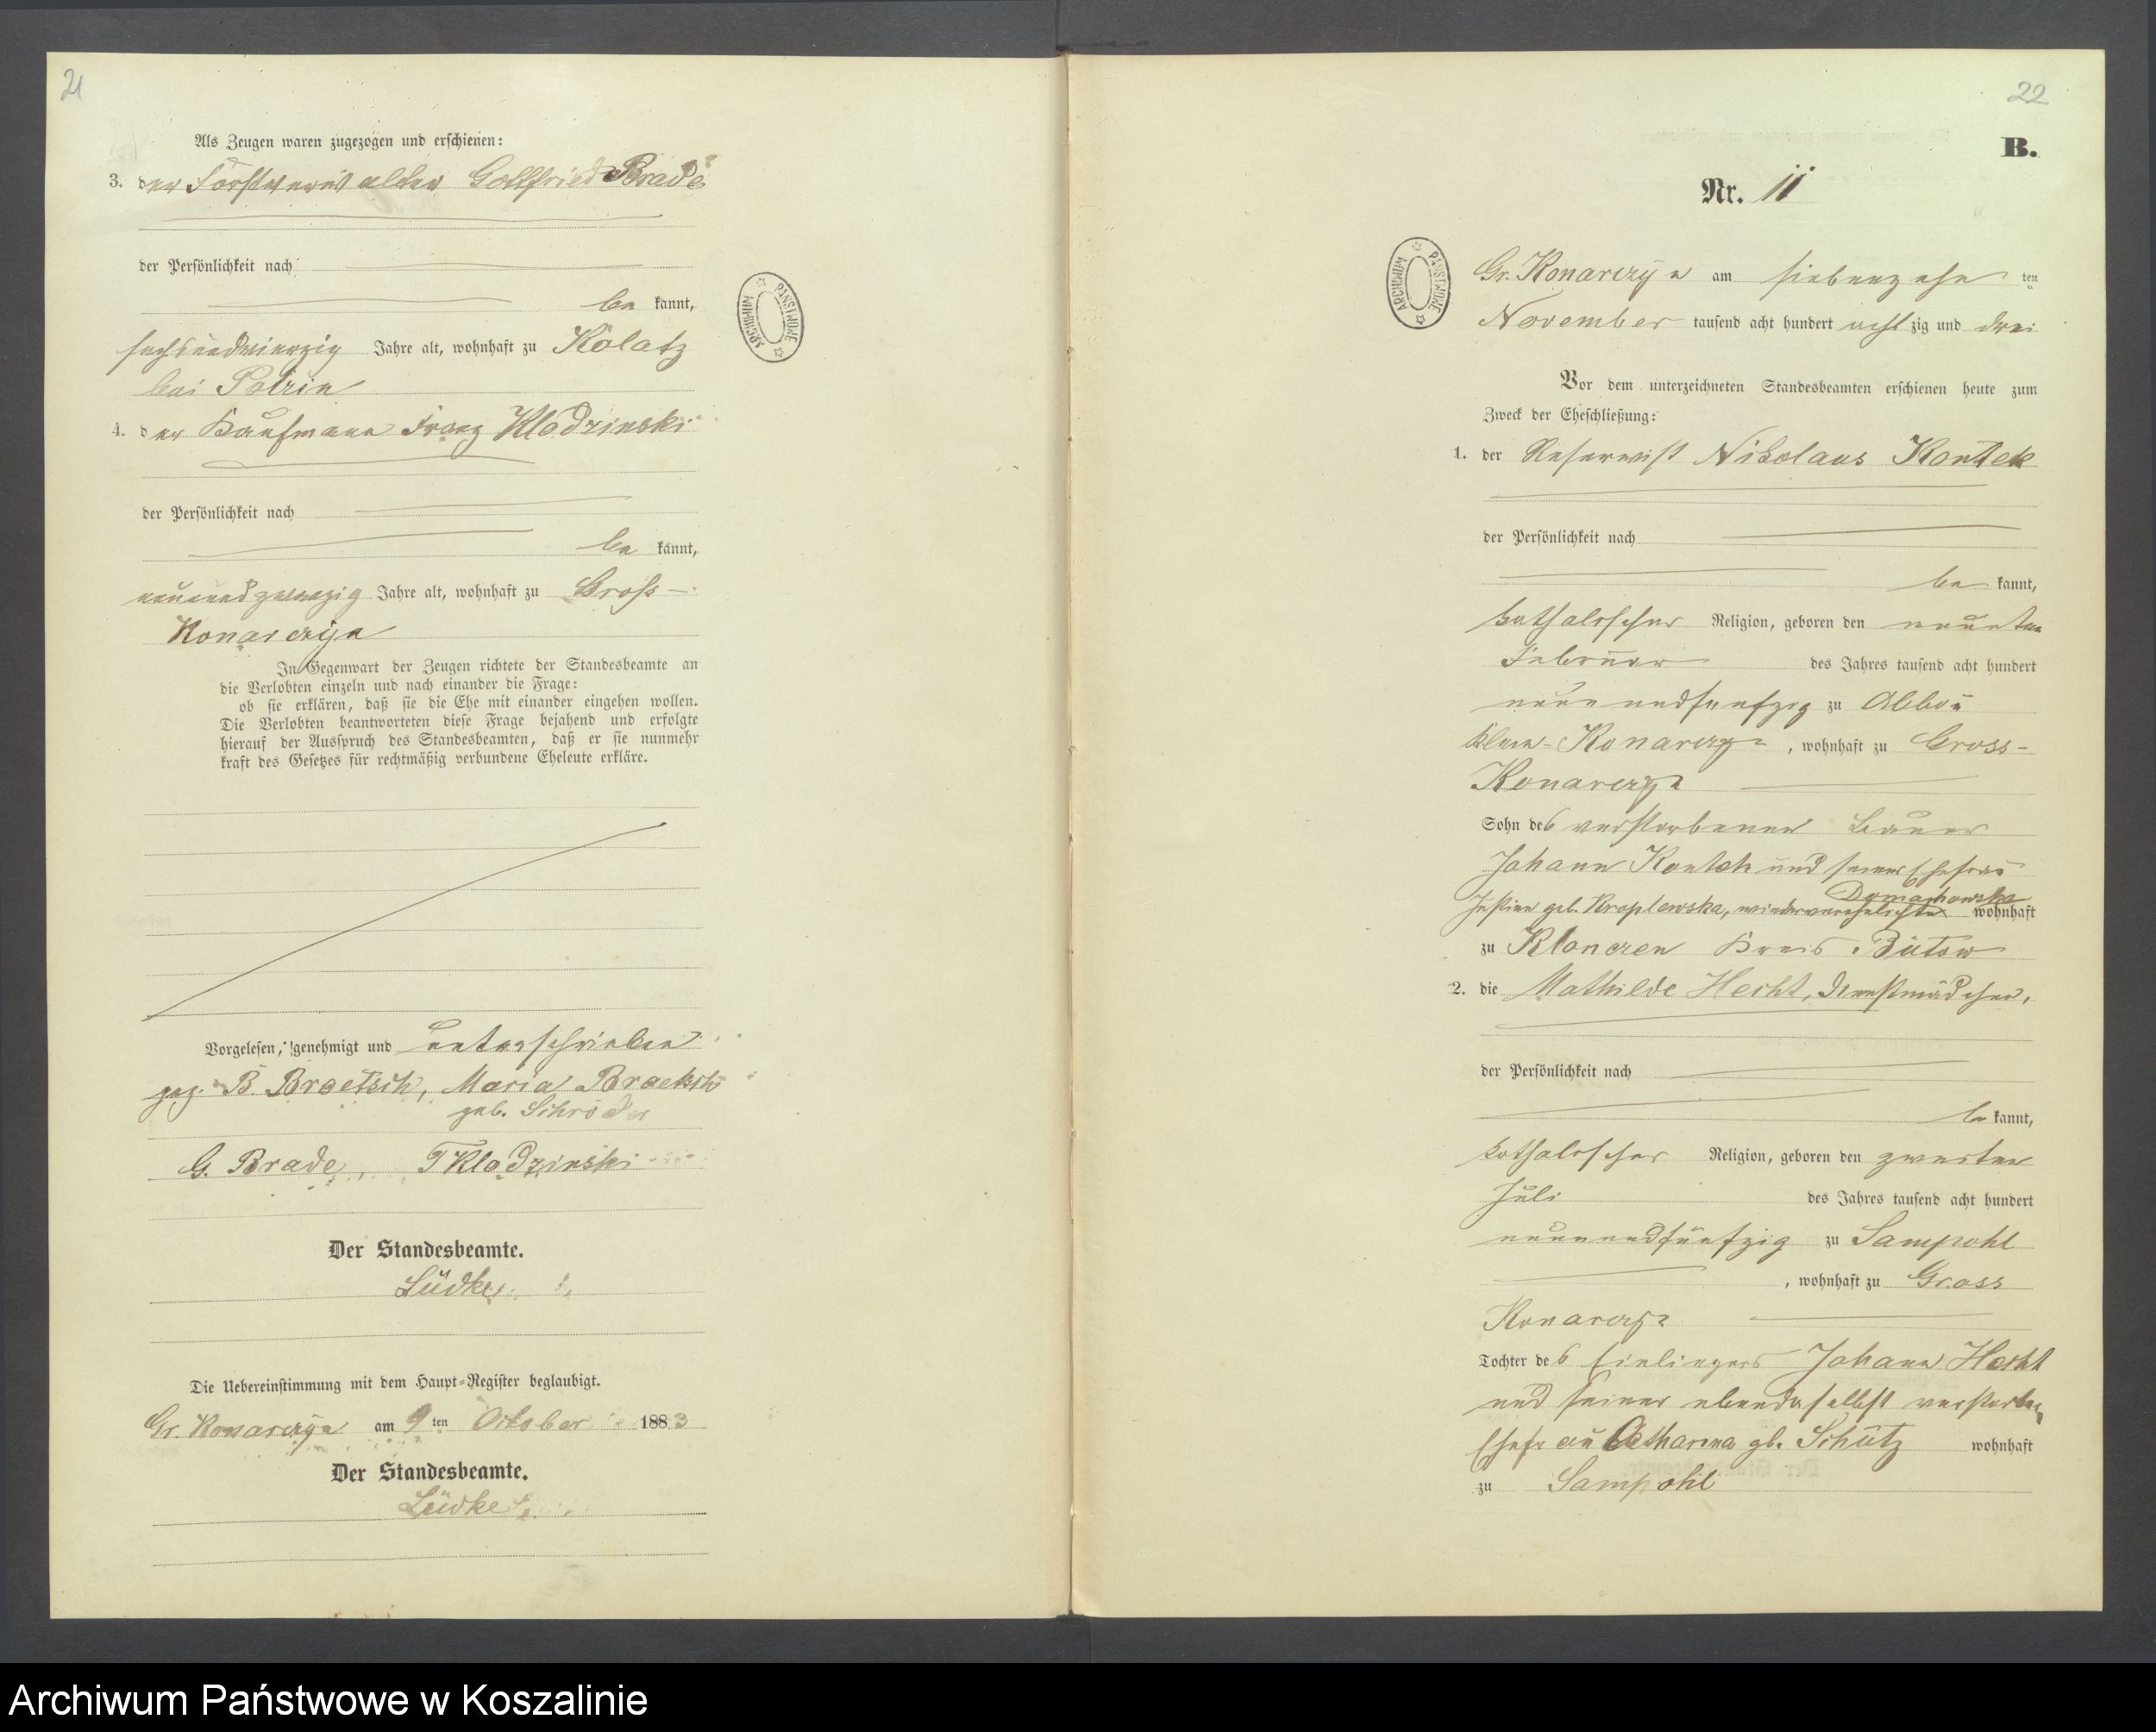 21
Als Zeugen waren zugezogen und erschienen:
3. der Forstverwalter Gottfried Brade
der Persönlichkeit nach
be kannt,
sechsundvierzig Jahre alt, wohnhaft zu Kolatz
bei Polzin
4. der Kaufmann Franz Klodzinski
der Persönlichkeit nach
be kannt,
neunundzwanzig Jahre alt, wohnhaft zu Gross-
Konarczyn
In Gegenwart der Zeugen richtete der Standesbeamte an
die Verlobten einzeln und nach einander die Frage:
ob sie erklären, daß sie die Ehe mit einander eingehen wollen.
Die Verlobten beantworteten diese Frage bejahend und erfolgte
hierauf der Ausspruch des Standesbeamten, daß er sie nunmehr
kraft des Gesetzes für rechtmäßig verbundene Eheleute erkläre.
Vorgelesen, genehmigt und unterschrieben
gez. B. Braetsch, Maria Braetsch
geb. Schröder
G. Brade, F Klodzinski
Der Standesbeamte.
Lüdke
Die Uebereinstimmung mit dem Haupt-Register beglaubigt.
Gr. Konarczyn am 9 ten October 1883
Der Standesbeamte.
Lüdke
ARCHIWUM PAŃSTWOWE
22
B.
Nr. 11
ARCHIWUM PAŃSTWOWE
Gr. Konarczyn am siebenzehn ten
November tausend acht hundert acht zig und drei
Vor dem unterzeichneten Standesbeamten erschienen heute zum
Zweck der Eheschließung:
1. der Reservist Nikolaus Kontek
der Persönlichkeit nach
be kannt,
katholischer Religion, geboren den neunten
Februar des Jahres tausend acht hundert
neunundfunfzig zu Abbau
Klein-Konarczyn, wohnhaft zu Gross-
Konarczyn
Sohn des verstorbenen Bauer
Johann Kontek und seiner Ehefrau
Domachowska
Justine geb. Kroplewska, wiederverehelichte wohnhaft
zu Klonczen Kreis Bütow
2. die Mathilde Hecht, Dienstmädchen,
der Persönlichkeit nach
be kannt,
katholischer Religion, geboren den zweiten
Juli des Jahres tausend acht hundert
neunundfünfzig zu Sampohl
, wohnhaft zu Gross
Konarczyn
Tochter des Einliegers Johann Hecht
und seiner ebendaselbst verstorbenen
Ehefrau Catharina gb. Schütz wohnhaft
zu Sampohl
Archiwum Państwowe w Koszalinie